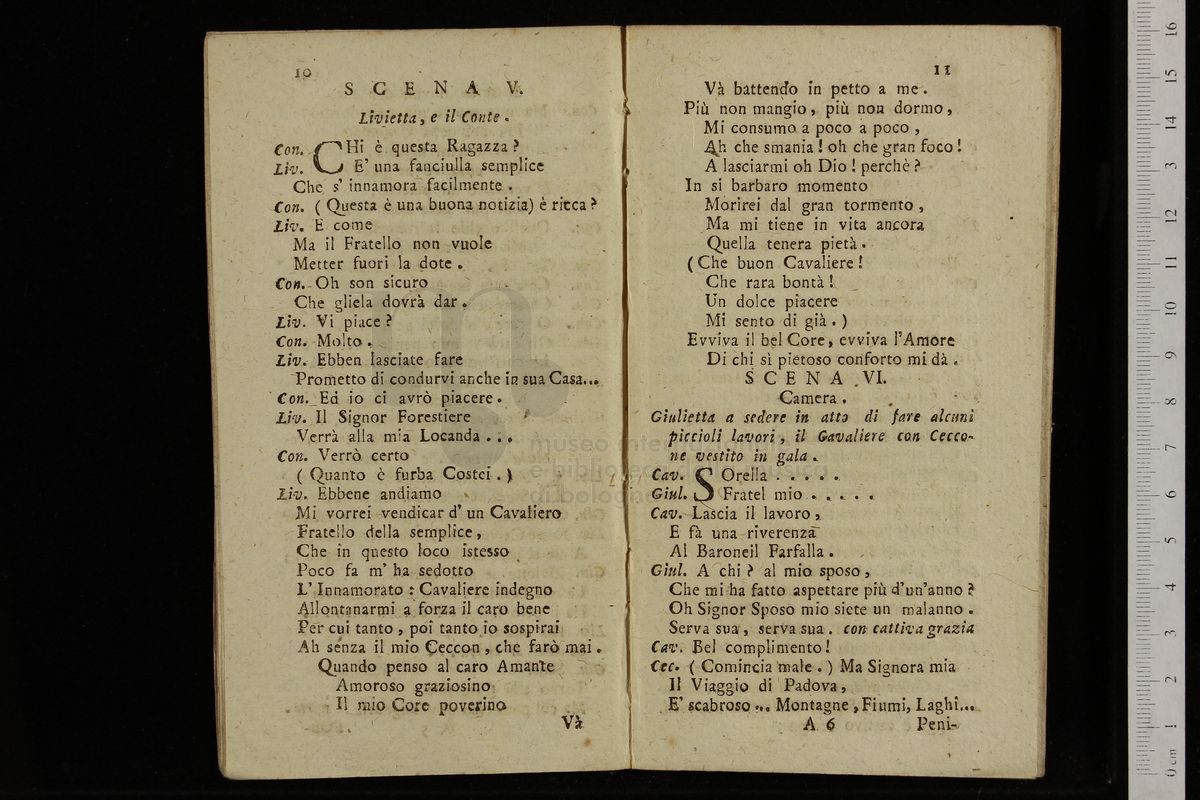 10
SCENA V.
Livietta, e il Conte.
Con. CHi è questa Ragazza?
Liv. E' una fanciulla semplice
Che s' innamora facilmente.
Con. (Questa è una buona notizia) è ricca?
Liv. E come
Ma il Fratello non vuole
Metter fuori la dote.
Con. Oh son sicuro
Che gliela dovrà dar.
Liv. Vi piace?
Con. Molto.
Liv. Ebben lasciate fare
Prometto di condurvi anche in sua Casa...
Con. Ed io ci avrò piacere.
Liv. Il Signor Forestiere
Verrà alla mia Locanda...
Con. Verrò certo
(Quanto è furba Costei.)
Liv. Ebbene andiamo
Mi vorrei vendicar d' un Cavaliero
Fratello della semplice,
Che in questo loco istesso
Poco fa m' ha sedotto
L' Innamorato: Cavaliere indegno
Allontanarmi a forza il caro bene
Per cui tanto, poi tanto io sospirai
Ah senza il mio Ceccon, che farò mai.
Quando penso al caro Amante
Amoroso graziosino
Il mio Core poverino
Và
11
Và battendo in petto a me.
Più non mangio, più non dormo,
Mi consumo a poco a poco,
Ah che smania! oh che gran foco!
A lasciarmi oh Dio! perchè?
In sì barbaro momento
Morirei dal gran tormento,
Ma mi tiene in vita ancora
Quella tenera pietà.
(Che buon Cavaliere!
Che rara bontà!
Un dolce piacere
Mi sento di già.)
Evviva il bel Core, evviva l'Amore
Di chi sì pietoso conforto mi dà.
SCENA VI.
Camera.
Giulietta a sedere in atto di fare alcuni
piccioli lavori, il Cavaliere con Cecco-
ne vestito in gala.
Cav. SOrella.....
Giul. Fratel mio.....
Cav. Lascia il lavoro,
E fà una riverenza
Al Baroneil Farfalla.
Giul. A chi? al mio sposo,
Che mi ha fatto aspettare più d'un'anno?
Oh Signor Sposo mio siete un malanno.
Serva sua, serva sua. con cattiva grazia
Cav. Bel complimento!
Cec. (Comincia male.) Ma Signora mia
Il Viaggio di Padova,
E' scabroso... Montagne, Fiumi, Laghi...
A 6 Peni-